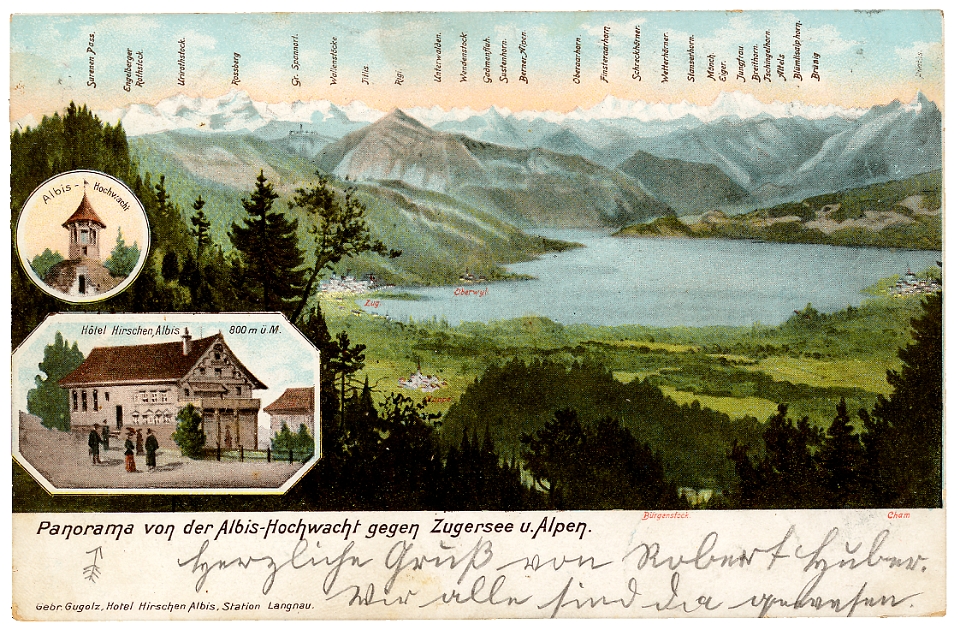 Surenen Pass.
Engelberger
Rothstock.
Urirothstock.
Rossberg
Gr. Spannort.
Wallenstöcke
Titlis
Rigi
Unterwalden.
Wendenstock
Gadmerfluh.
Sustenhorn.
Berner Alpen.
Oberaarhorn
Finsteraarhorn
Schreckhörner.
Wetterhörner.
Stanserhorn.
Mönch.
Eiger.
Jungfrau
Breithorn.
Tschingelhorn.
Altels
Blümlisalphorn.
Brünig
Albis-Hochwacht
Hôtel Hirschen, Albis 800 m ü. M.
Zug.
Oberwyl
Bürgenstock.
Cham
Panorama von der Albis-Hochwacht gegen Zugersee u. Alpen.
Herzliche Gruß von Robert Huber.
Wir alle sind da gewesen.
Gebr. Gugolz, Hotel Hirschen Albis, Station Langnau.